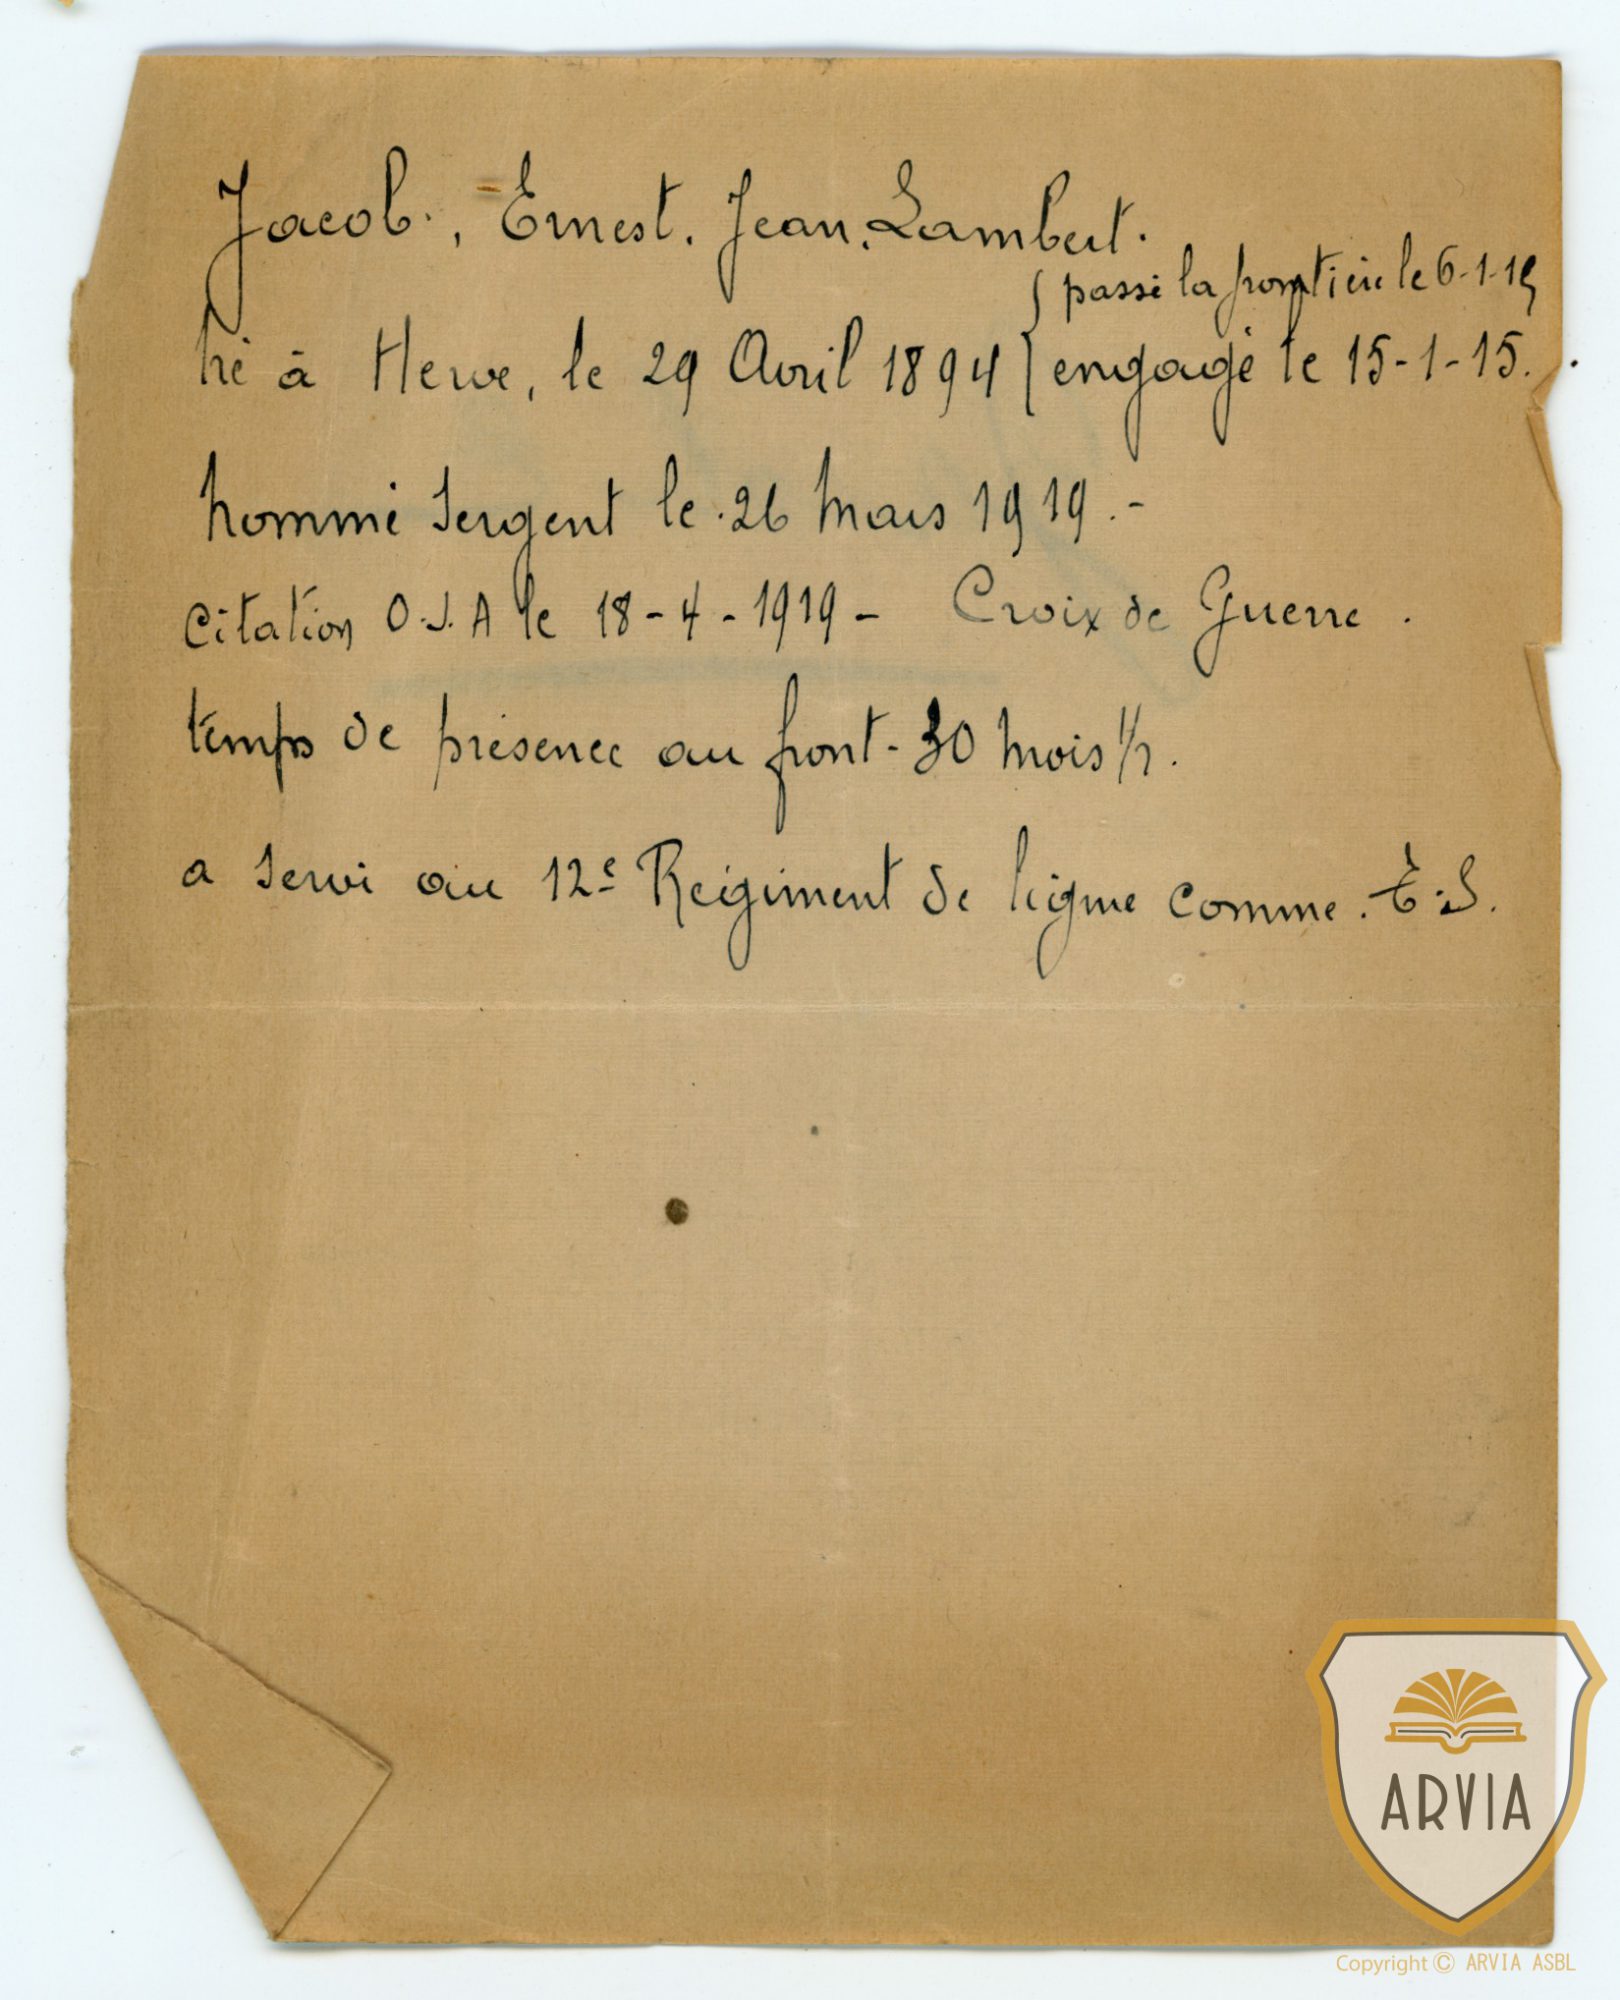 Jacob., Ernest. Jean. Lambert.
passé la frontière le 6-1-15
né à Herve, le 29 Avril 1894 engagé le 15-1-15.
nommé Sergent le 26 Mars 1919.-
Citation O.J.A le 18-4-1919- Croix de Guerre.
temps de présence au front- 30 mois 1/2.
a servi au 12e Régiment de ligne comme. T.S.
ARVIA
Copyright © ARVIA ASBL